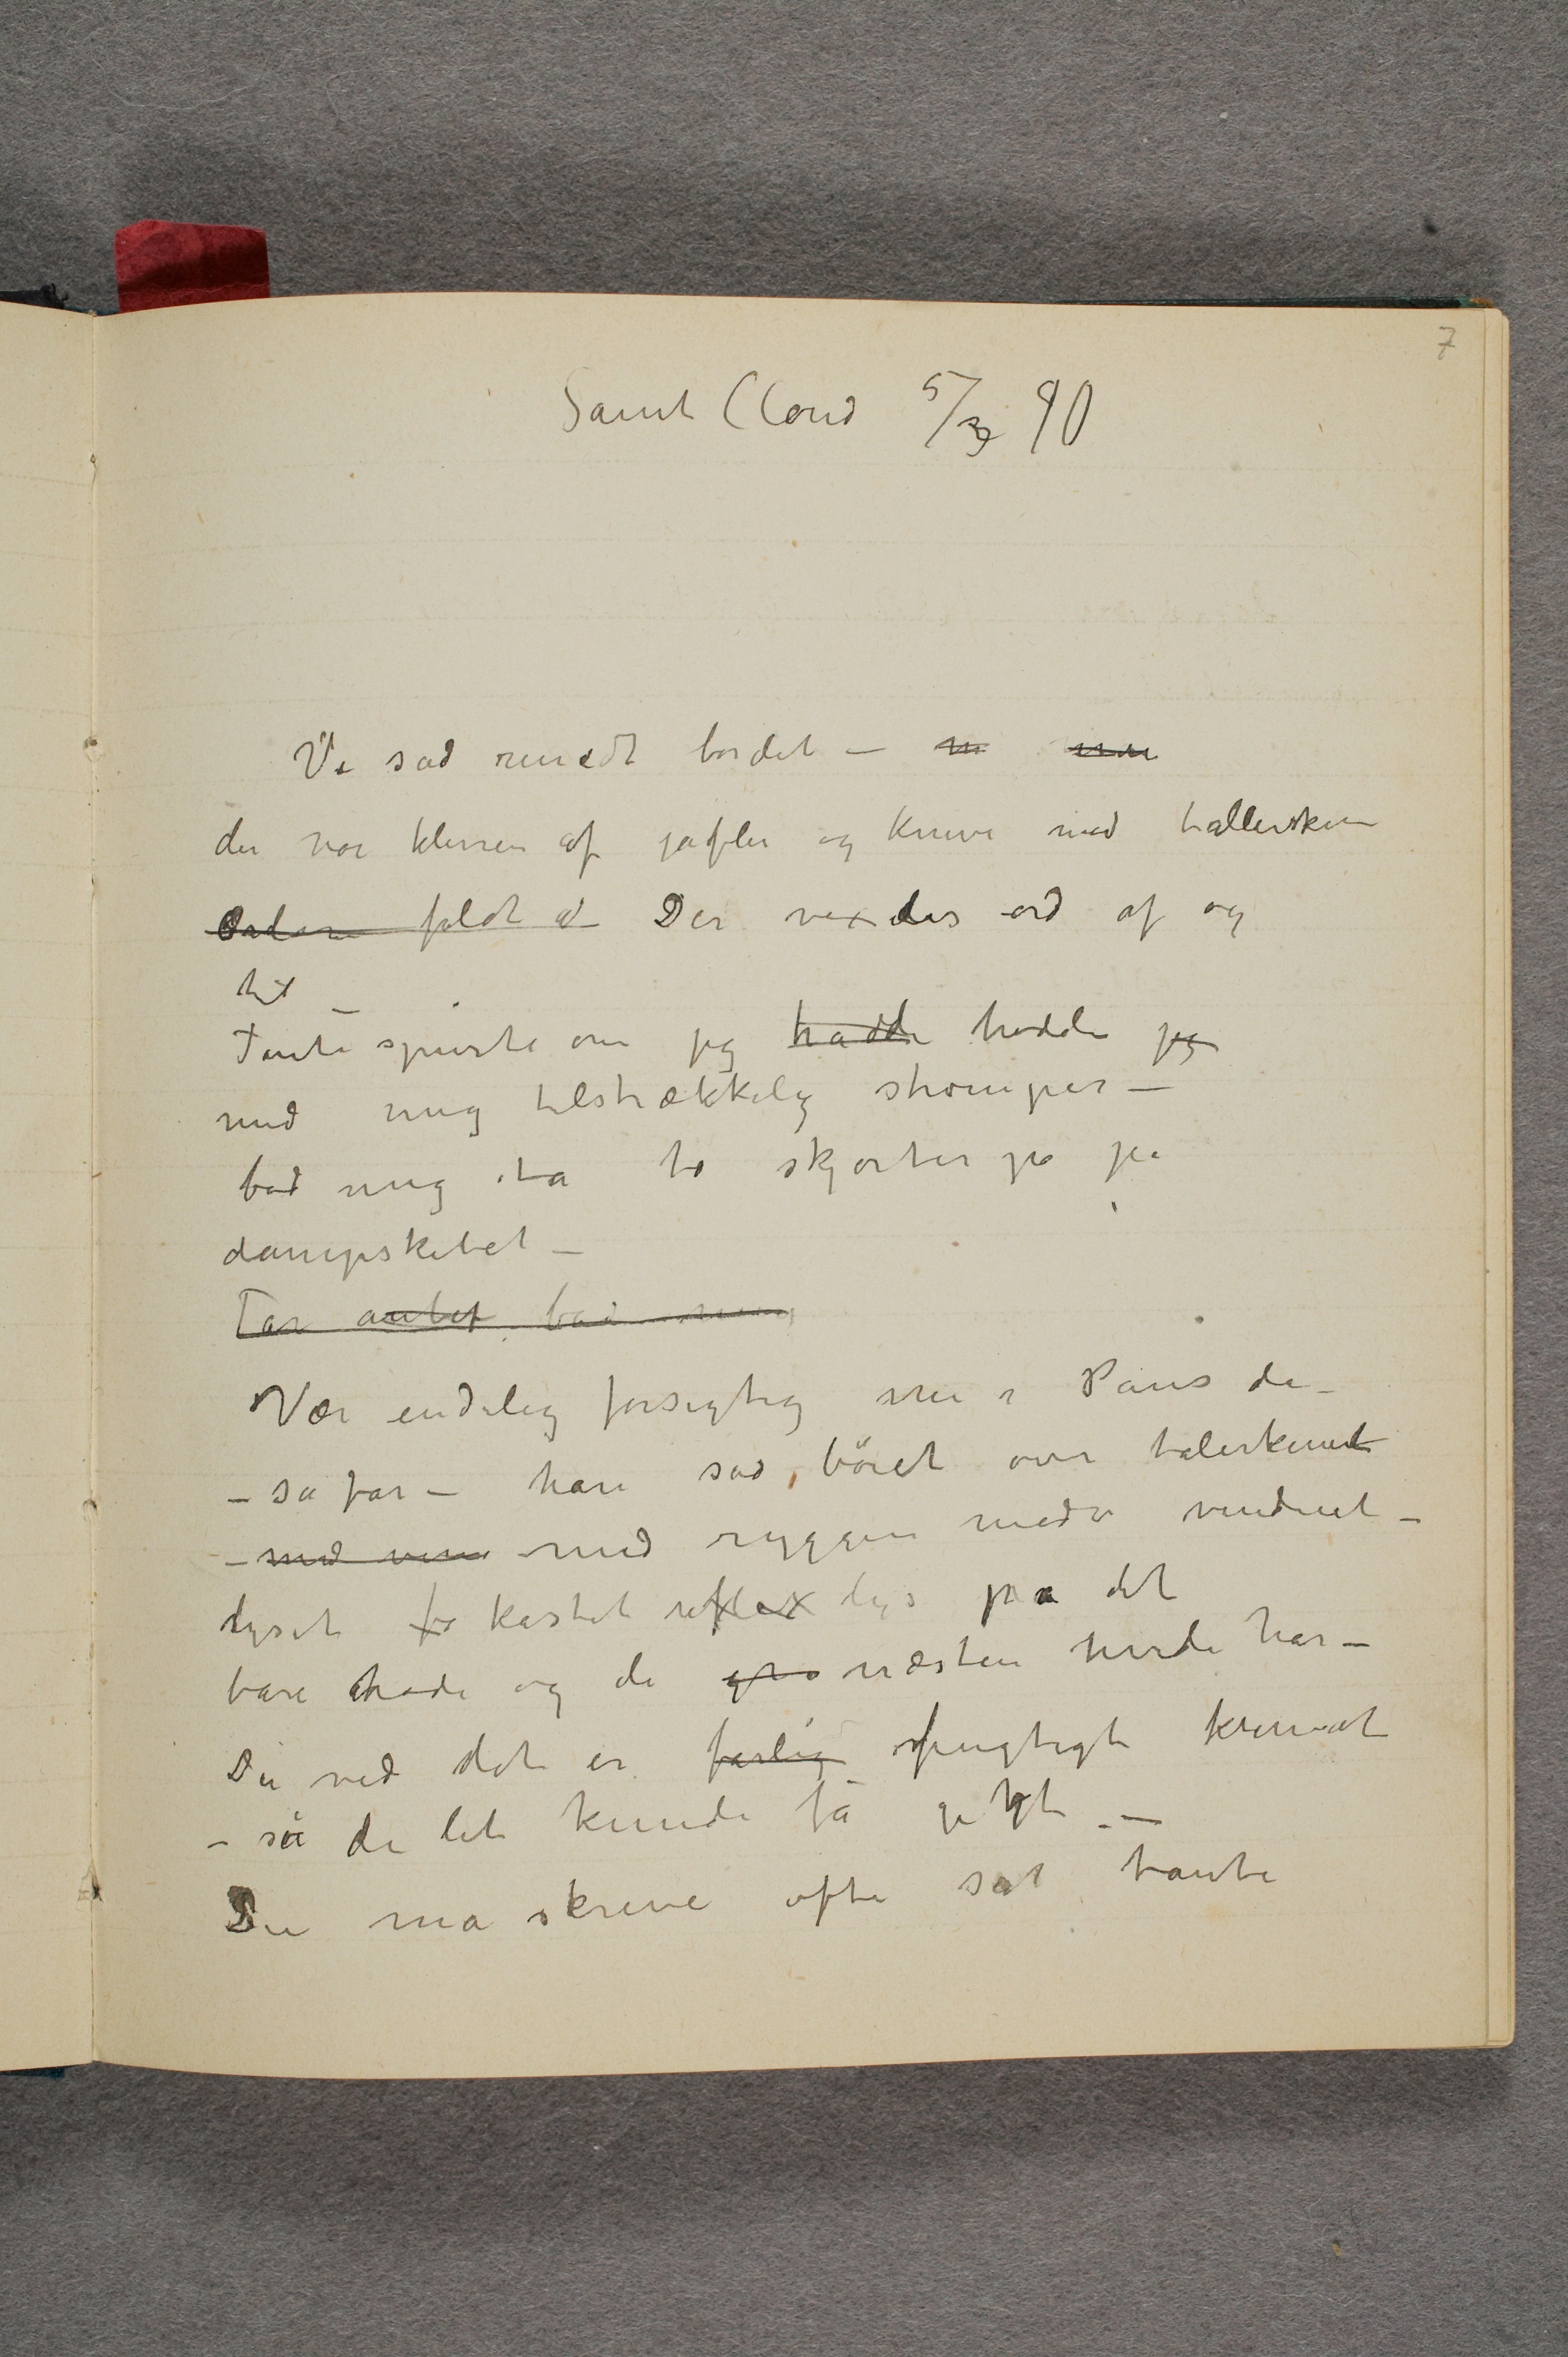 7
Saint Cloud 5/3 90
Vi sad rundt bordet –
der var klirren af gafler og knive med tallerkener
Ordene faldt a Der vexledes ord af og
til –
Tante spurte om jeg hadde hadde jeg
med mig tilstrækkelig strømper –
bad mig ta to skjorter på på
dampskibet –
Far bad mig
Vær endelig forsigtig nu i Paris da –
– sa far – han sad, böiet over talerkenen
– med med ryggen mod vinduet –
lyset kastet reflex lys på det
bare hode og de grå næsten hvide hår –
Du ved det er farlig fugtigt klimat
– så du let kunde få gigt –
Du må skrive ofte sa tante